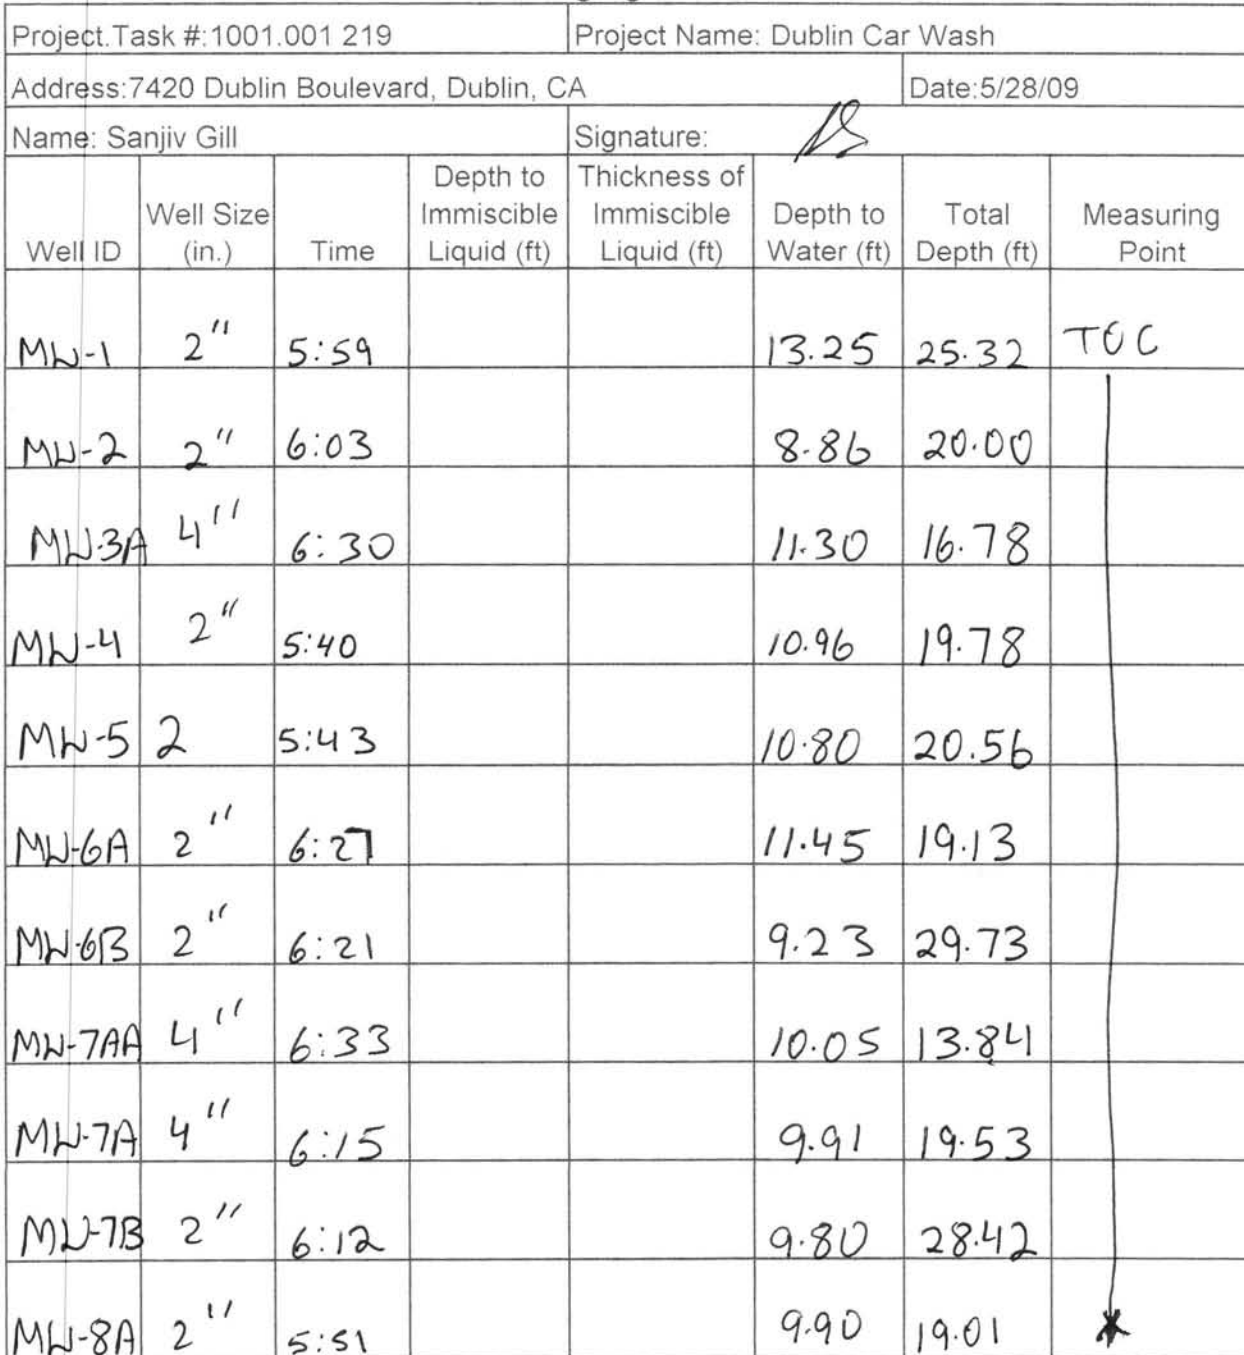 Project.Task #:1001.001 219 Project Name: Dublin Car Wash
Address:7420 Dublin Boulevard, Dublin, CA Date:5/28/09
Name: Sanjiv Gill Signature:
Well ID Well Size (in.) Time Depth to Immiscible Liquid (ft) Thickness of Immiscible Liquid (ft) Depth to Water (ft) Total Depth (ft) Measuring Point
MW-1 2" 5:59 13.25 25.32 TOC
MW-2 2" 6:03 8.86 20.00
MW-3A 4" 6:30 11.30 16.78
MW-4 2" 5:40 10.96 19.78
MW-5 2 5:43 10.80 20.56
MW-6A 2" 6:27 11.45 19.13
MW-6B 2" 6:21 9.23 29.73
MW-7AA 4" 6:33 10.05 13.84
MW-7A 4" 6:15 9.91 19.53
MW-7B 2" 6:12 9.80 28.42
MW-8A 2" 5:51 9.90 19.01